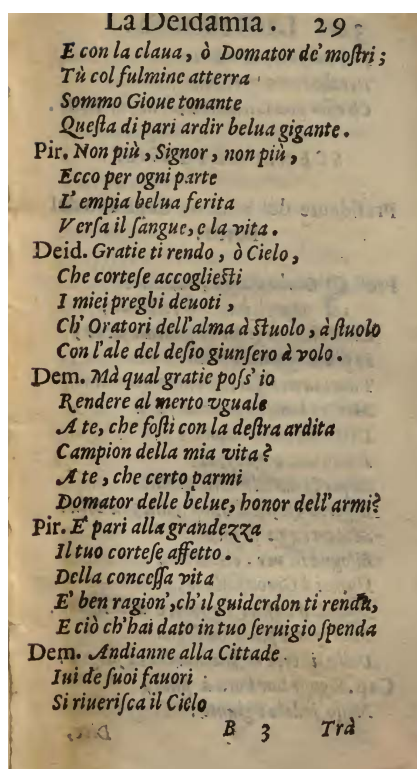 La Deidamia. 29
E con la claua, ò Domator de' moſtri;
Tù col fulmine atterra
Sommo Gioue tonante
Queſta di pari ardir belua gigante.
Pir. Non più, Signor, non più,
Ecco per ogni parte
L'empia belua ferita
Verſa il ſangue, e la vita.
Deid. Gratie ti rendo, ò Cielo,
Che corteſe accoglieſti
I miei preghi deuoti,
Ch' Oratori dell'alma à ſtuolo, à ſtuolo
Con l'ale del deſio giunſero à volo.
Dem. Mà qual gratie poſs' io
Rendere al merto vguale
A te, che foſti con la deſtra ardita
Campion della mia vita?
A te, che certo parmi
Domator delle belue, honor dell'armi?
Pir. E' pari alla grandezza
Il tuo corteſe affetto.
Della conceſſa vita
E' ben ragion', ch'il guiderdon ti renda,
E ciò ch'hai dato in tuo ſeruigio ſpenda
Dem. Andianne alla Cittade
Iui de ſuoi fauori
Si riueriſca il Cielo
B 3 Trà